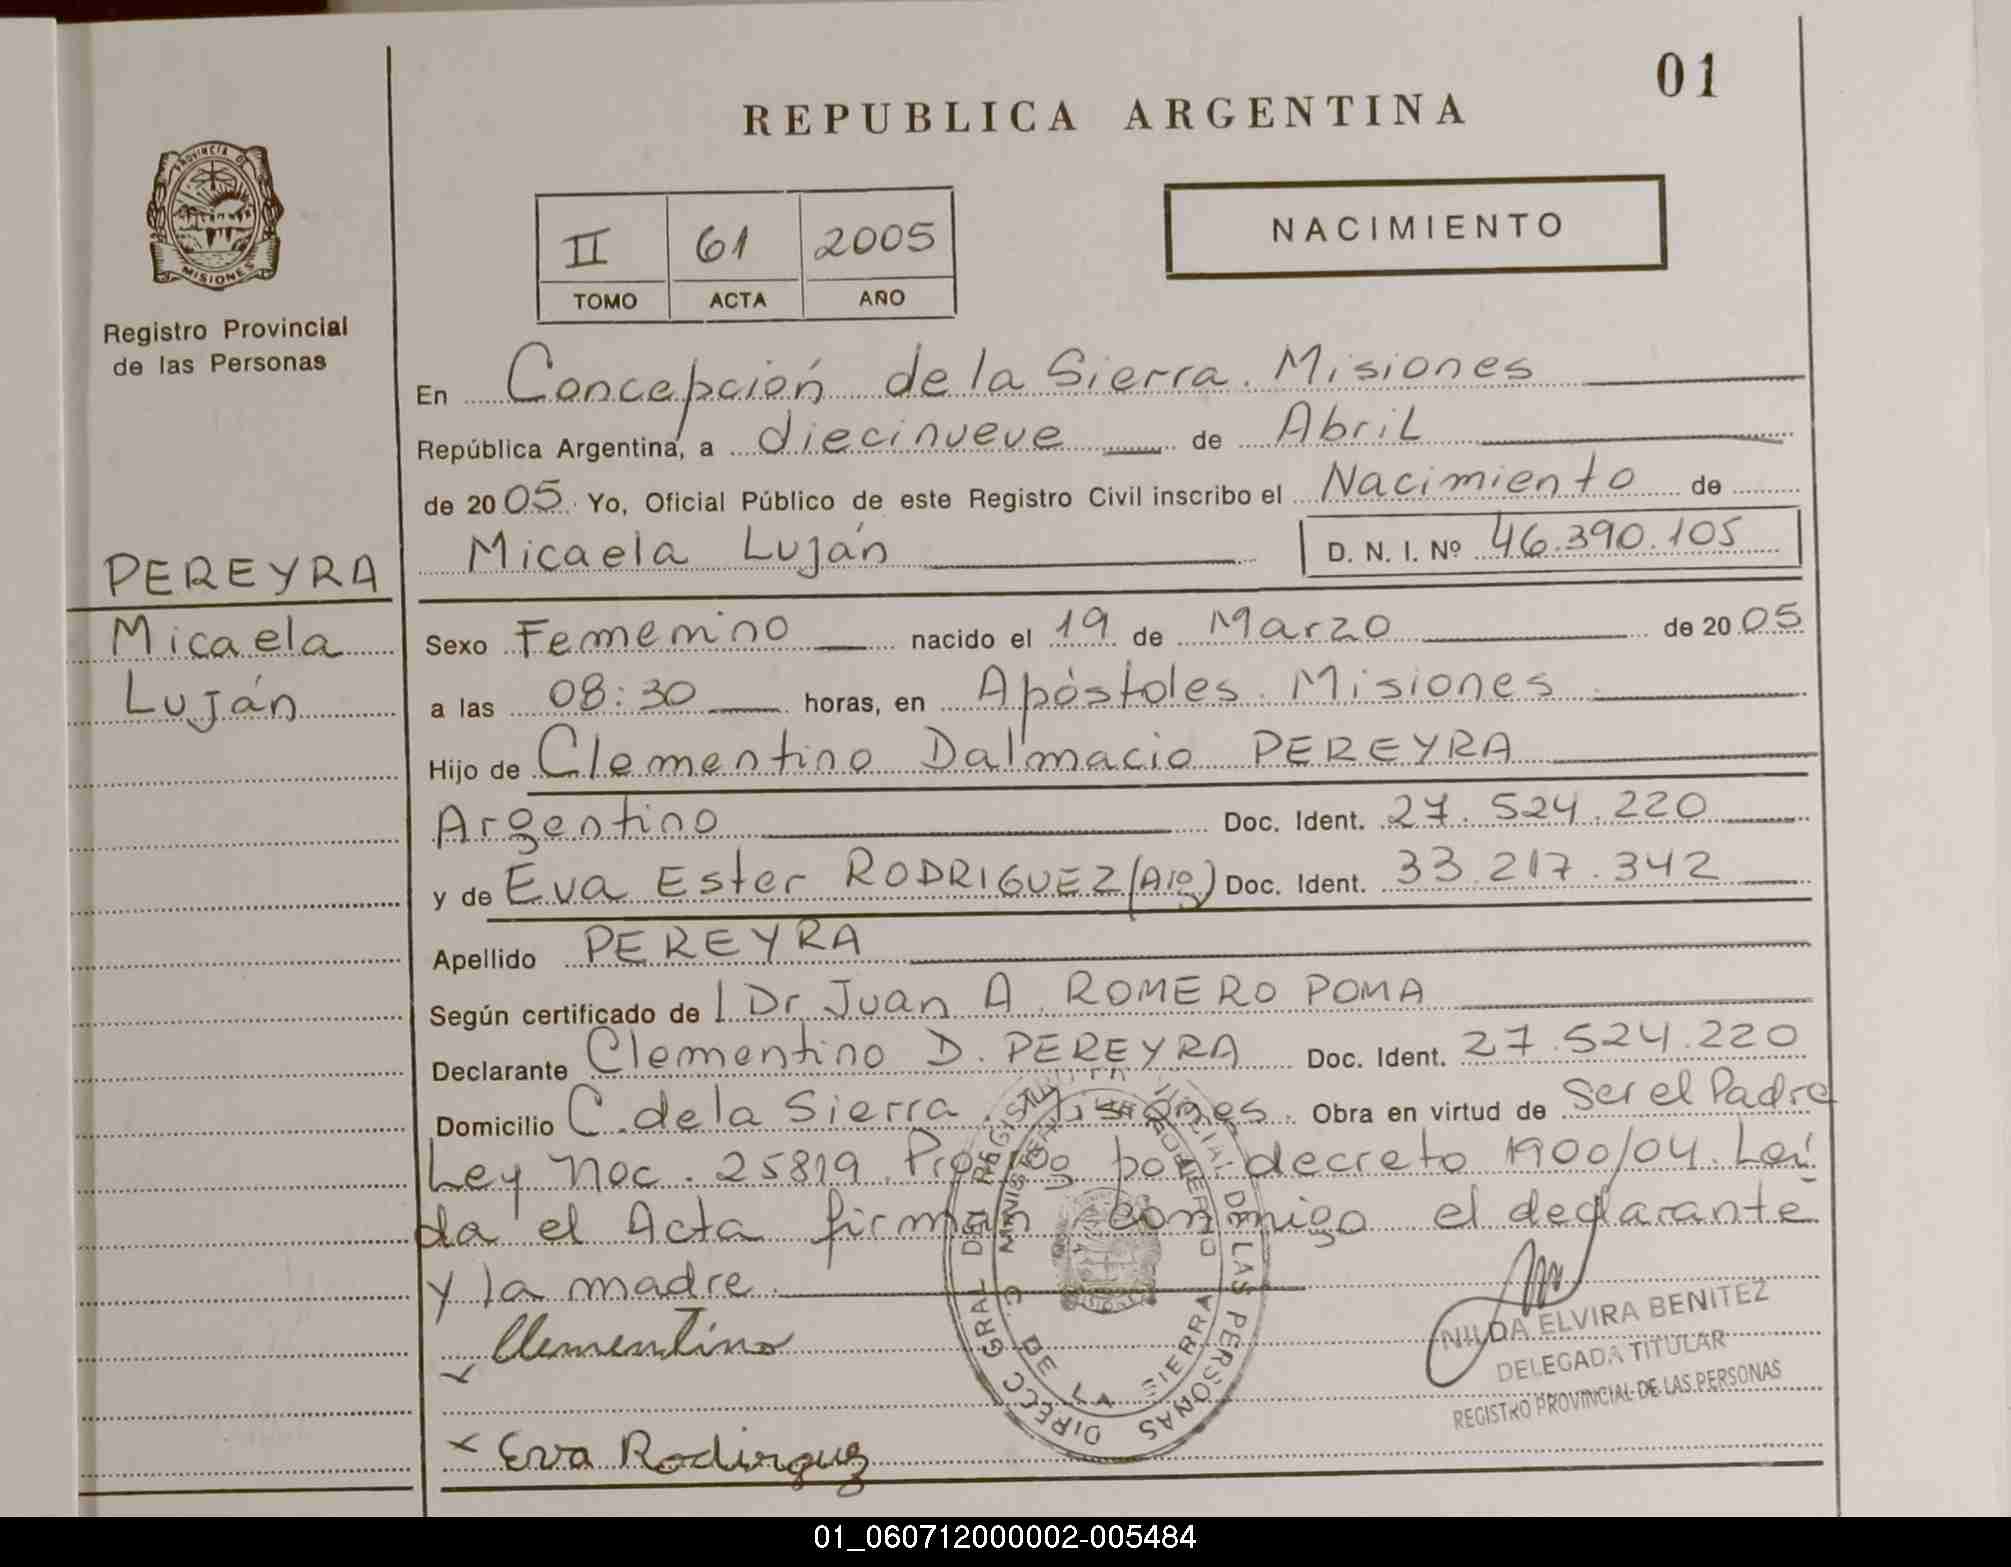 01
REPUBLICA ARGENTINA
PROVINCIA DE
MISIONES
Registro Provincial
de las Personas
II 61 2005
TOMO ACTA AÑO
NACIMIENTO
En Concepción de la Sierra. Misiones
República Argentina, a diecinueve de Abril
de 2005. Yo, Oficial Público de este Registro Civil inscribo el Nacimiento de
Micaela Luján D. N. I. Nº 46.390.105
PEREYRA
Micaela
Luján
Sexo Femenino nacido el 19 de Marzo de 2005
a las 08:30 horas, en Apóstoles. Misiones
Hijo de Clementino Dalmacio PEREYRA
Argentino Doc. Ident. 27.524.220
y de Eva Ester RODRIGUEZ (Arg) Doc. Ident. 33.217.342
Apellido PEREYRA
Según certificado de l Dr Juan A. ROMERO POMA
Declarante Clementino D. PEREYRA Doc. Ident. 27.524.220
Domicilio C. de la Sierra. Misiones. Obra en virtud de Ser el Padre
Ley Nac. 25819. por decreto 1900/04. Leí
da el Acta firman conmigo el declarante
y la madre.
Clementino
x Eva Rodirguez
DIRECC GRAL DEL REGISTRO PROVINCIAL DE LAS PERSONAS
MINISTERIO DE GOBIERNO
C. DE LA SIERRA
NILDA ELVIRA BENITEZ
DELEGADA TITULAR
REGISTRO PROVINCIAL DE LAS PERSONAS
01_060712000002-005484